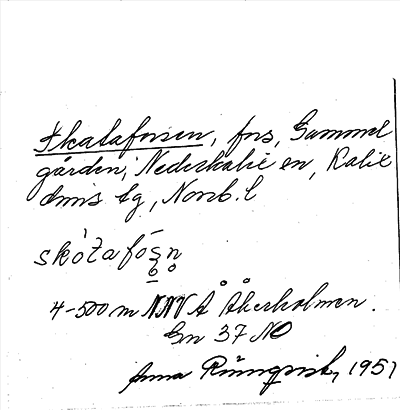 Skataforsen, fors, Gammel
gården, Nederkalix en, Kalix
dmis lg, Norrb. l
skòtafo̅s̥n̥
4-500 m NNV Å Åkerholmen.
En 37 NO
Anna Rönnqvist, 1951